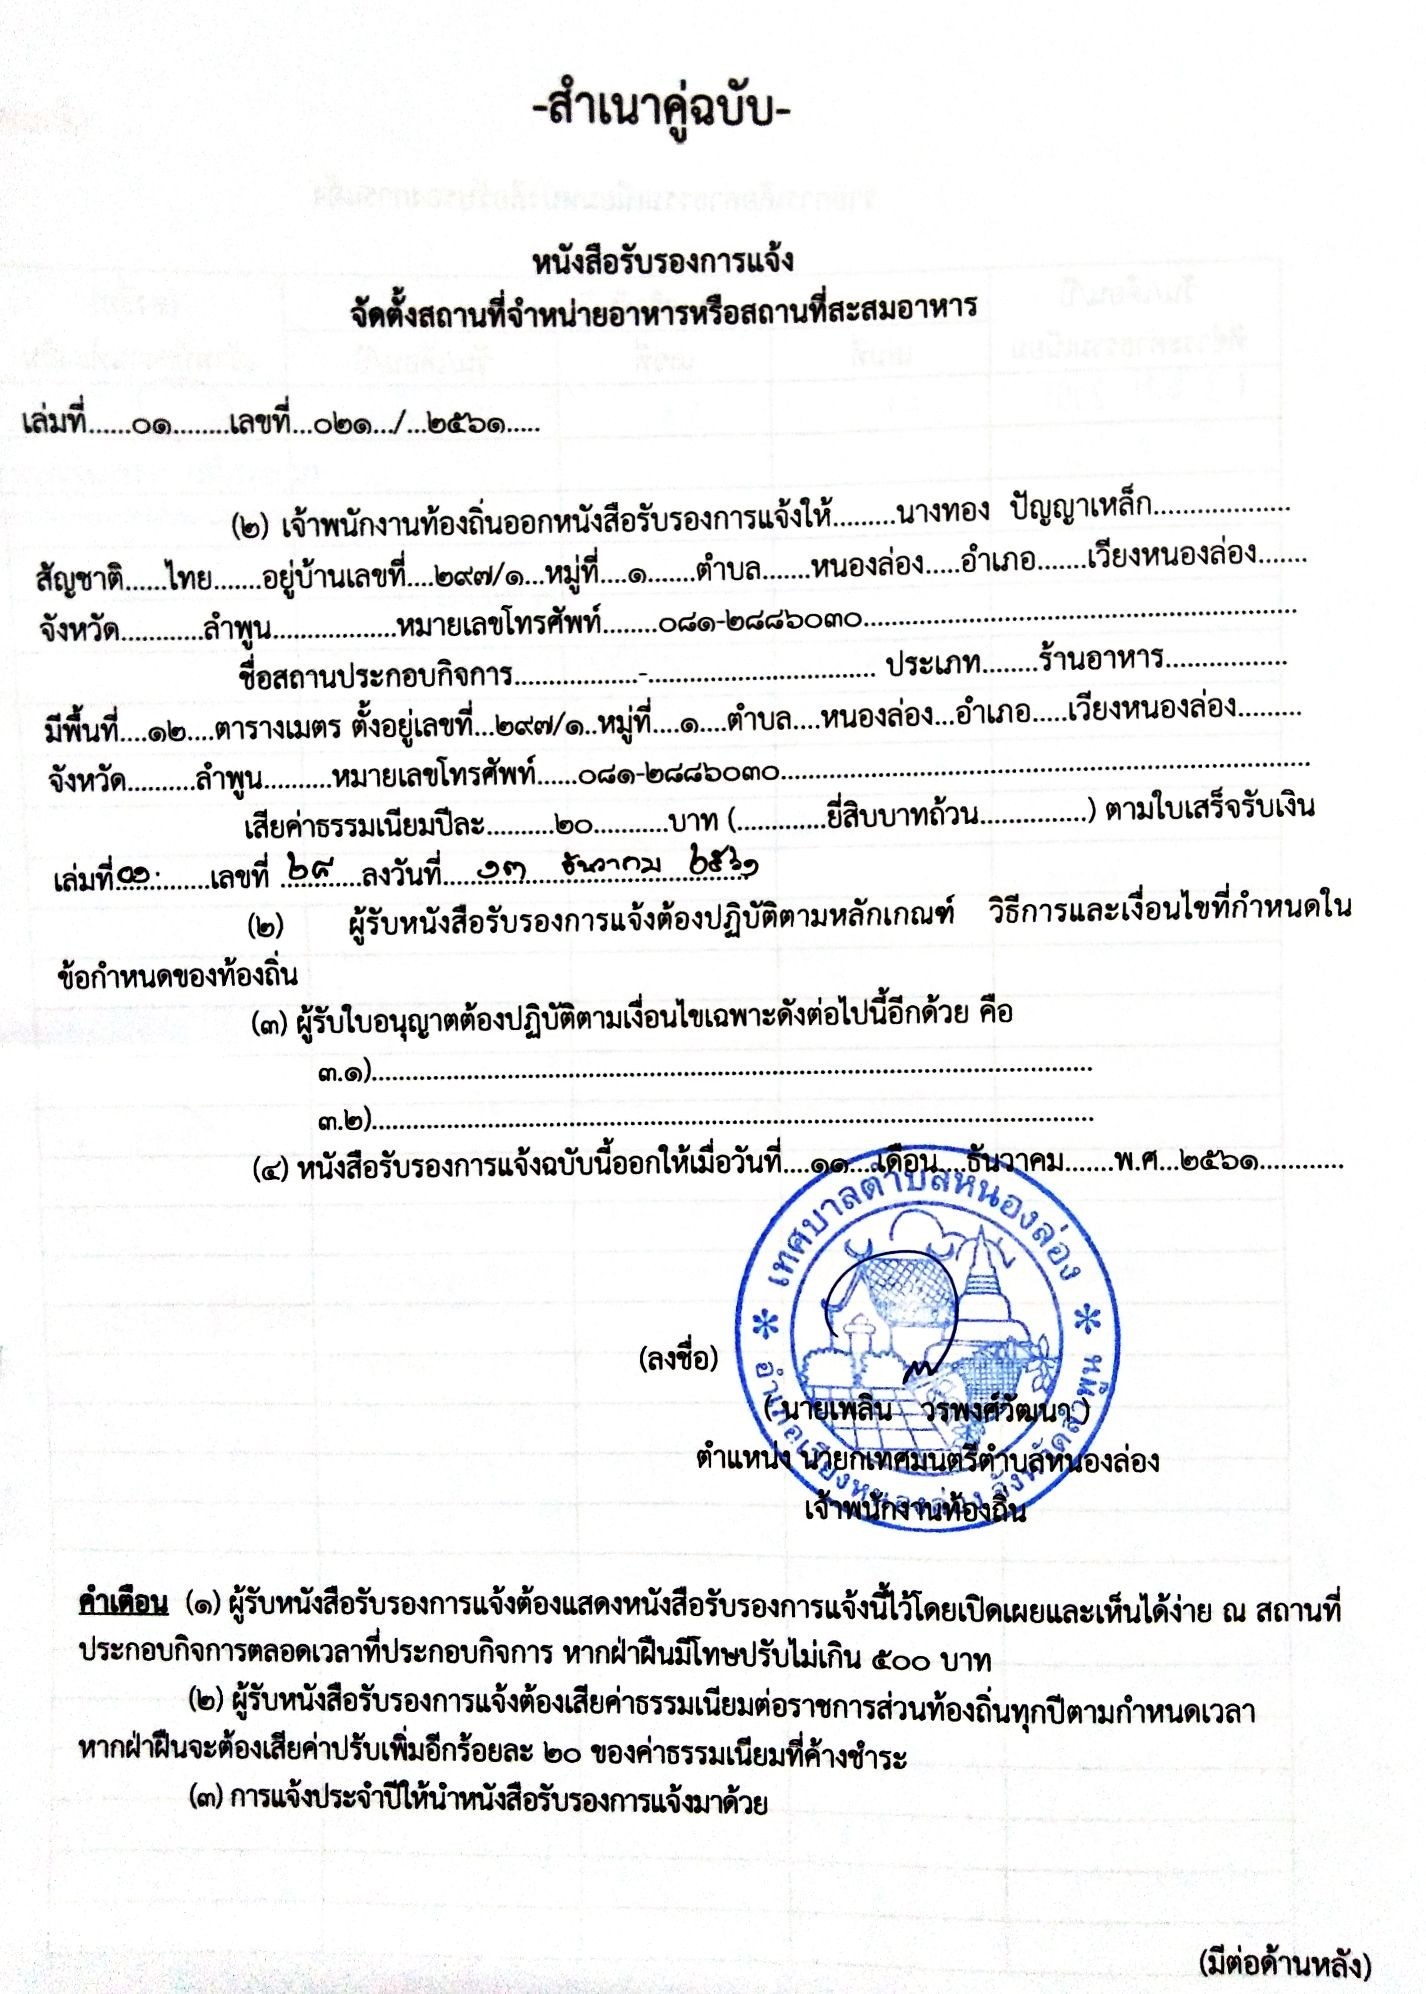 -สำเนาคู่ฉบับ-
หนังสือรับรองการแจ้ง
จัดตั้งสถานที่จำหน่ายอาหารหรือสถานที่สะสมอาหาร
เล่มที่......๐๑........เลขที่...๐๒๑.../...๒๕๖๑.....
(๒) เจ้าพนักงานท้องถิ่นออกหนังสือรับรองการแจ้งให้.........นางทอง ปัญญาเหล็ก...................
สัญชาติ......ไทย.......อยู่บ้านเลขที่....๒๙๗/๑...หมู่ที่....๑.......ตำบล.......หนองล่อง.....อำเภอ.......เวียงหนองล่อง.......
จังหวัด............ลำพูน..................หมายเลขโทรศัพท์........๐๘๑-๒๘๘๖๐๓๐...............................................................
ชื่อสถานประกอบกิจการ..................-................................. ประเภท........ร้านอาหาร.................
มีพื้นที่....๑๒....ตารางเมตร ตั้งอยู่เลขที่...๒๙๗/๑..หมู่ที่....๑....ตำบล....หนองล่อง...อำเภอ.....เวียงหนองล่อง.........
จังหวัด..........ลำพูน..........หมายเลขโทรศัพท์......๐๘๑-๒๘๘๖๐๓๐..............................................................................
เสียค่าธรรมเนียมปีละ..........๒๐...........บาท (.............ยี่สิบบาทถ้วน...............) ตามใบเสร็จรับเงิน
เล่มที่ ๐๑ เลขที่ ๖๘ ลงวันที่ ๑๓ ธันวาคม ๒๕๖๑
(๒) ผู้รับหนังสือรับรองการแจ้งต้องปฏิบัติตามหลักเกณฑ์ วิธีการและเงื่อนไขที่กำหนดใน
ข้อกำหนดของท้องถิ่น
(๓) ผู้รับใบอนุญาตต้องปฏิบัติตามเงื่อนไขเฉพาะดังต่อไปนี้อีกด้วย คือ
๓.๑)..........................................................................................................
๓.๒)..........................................................................................................
(๔) หนังสือรับรองการแจ้งฉบับนี้ออกให้เมื่อวันที่....๑๑....เดือน....ธันวาคม.......พ.ศ...๒๕๖๑............
เทศบาลตำบลหนองล่อง
อำเภอเวียงหนองล่อง จังหวัดลำพูน
(ลงชื่อ)
( นายเพลิน วรพงศ์วัฒนา )
ตำแหน่ง นายกเทศมนตรีตำบลหนองล่อง
เจ้าพนักงานท้องถิ่น
คำเตือน (๑) ผู้รับหนังสือรับรองการแจ้งต้องแสดงหนังสือรับรองการแจ้งนี้ไว้โดยเปิดเผยและเห็นได้ง่าย ณ สถานที่
ประกอบกิจการตลอดเวลาที่ประกอบกิจการ หากฝ่าฝืนมีโทษปรับไม่เกิน ๕๐๐ บาท
(๒) ผู้รับหนังสือรับรองการแจ้งต้องเสียค่าธรรมเนียมต่อราชการส่วนท้องถิ่นทุกปีตามกำหนดเวลา
หากฝ่าฝืนจะต้องเสียค่าปรับเพิ่มอีกร้อยละ ๒๐ ของค่าธรรมเนียมที่ค้างชำระ
(๓) การแจ้งประจำปีให้นำหนังสือรับรองการแจ้งมาด้วย
(มีต่อด้านหลัง)